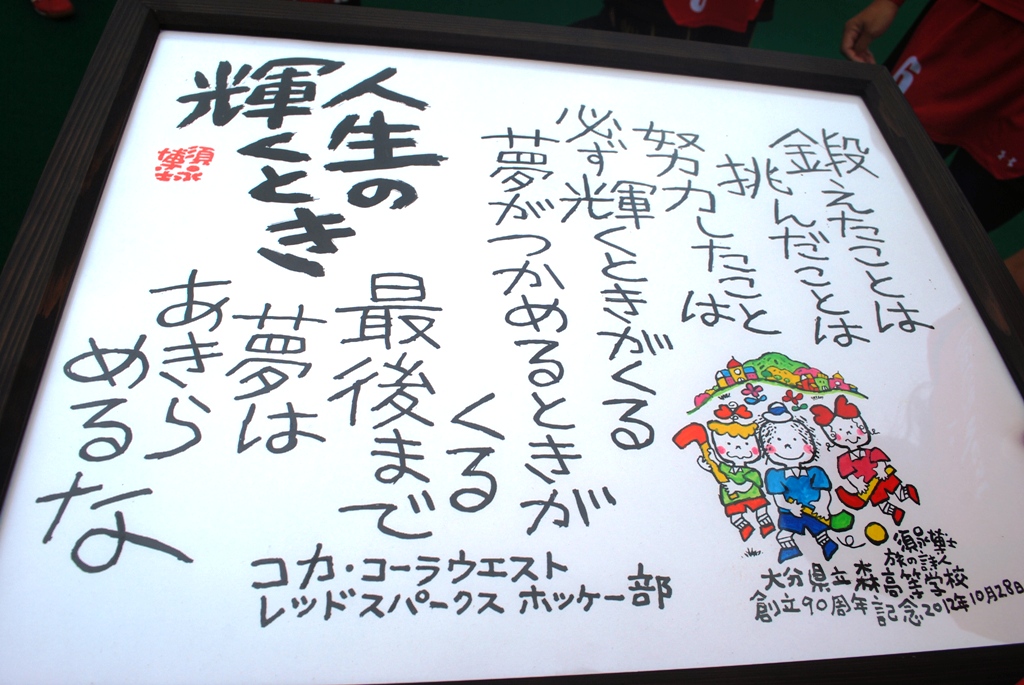 鍛えたことは
挑んだことは
努力したこと
は
必ず輝くときがくる
夢がつかめるときが
くる
人生の
輝くとき
最後まで
夢は
あきら
めるな
須永博士
コカ・コーラウエスト
レッドスパークス ホッケー部
須永博士
旅の詩人
大分県立森高等学校
創立90周年記念2012年10月28日
6